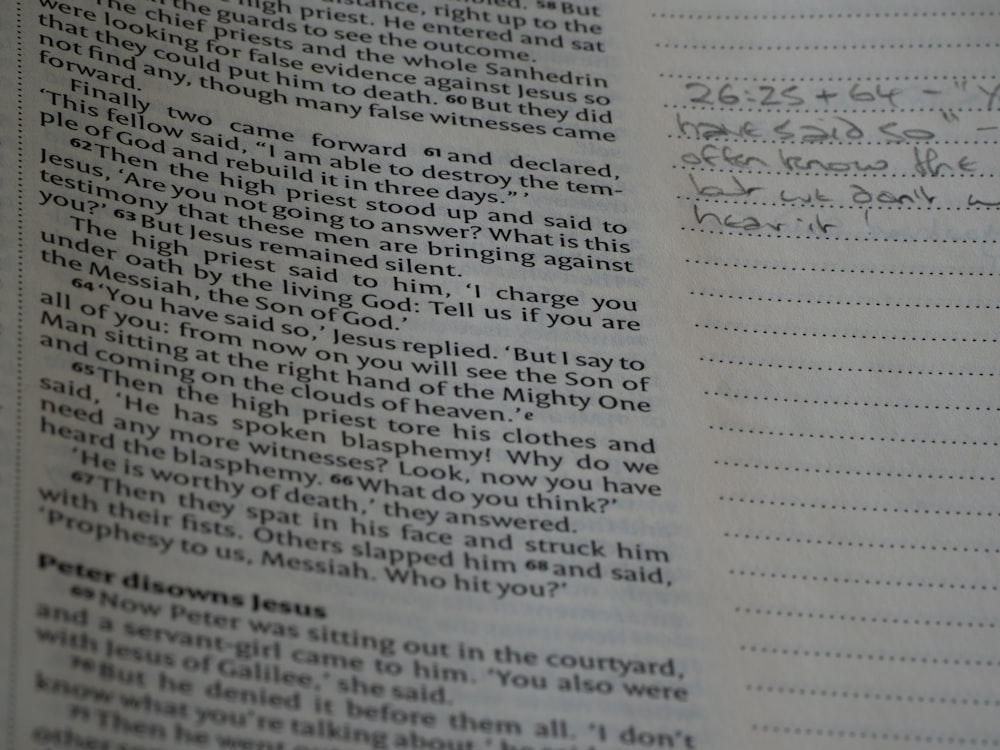 58 But
distance, right up to the
high priest. He entered and sat
the guards to see the outcome.
The chief priests and the whole Sanhedrin
were looking for false evidence against Jesus so
that they could put him to death. 60 But they did
not find any, though many false witnesses came
forward.
Finally two came forward 61 and declared,
‘This fellow said, “I am able to destroy the tem-
ple of God and rebuild it in three days.” ’
62 Then the high priest stood up and said to
Jesus, ‘Are you not going to answer? What is this
testimony that these men are bringing against
you?’ 63 But Jesus remained silent.
The high priest said to him, ‘I charge you
under oath by the living God: Tell us if you are
the Messiah, the Son of God.’
64 ‘You have said so,’ Jesus replied. ‘But I say to
all of you: from now on you will see the Son of
Man sitting at the right hand of the Mighty One
and coming on the clouds of heaven.’e
65 Then the high priest tore his clothes and
said, ‘He has spoken blasphemy! Why do we
need any more witnesses? Look, now you have
heard the blasphemy. 66 What do you think?’
‘He is worthy of death,’ they answered.
67 Then they spat in his face and struck him
with their fists. Others slapped him 68 and said,
‘Prophesy to us, Messiah. Who hit you?’
Peter disowns Jesus
69 Now Peter was sitting out in the courtyard,
and a servant-girl came to him. ‘You also were
with Jesus of Galilee,’ she said.
70 But he denied it before them all. ‘I don't
know what you're talking about,’ he said.
71 Then he went
26:25 + 64 - "Y
have said so" -
often know the
but we don't w
hear it!